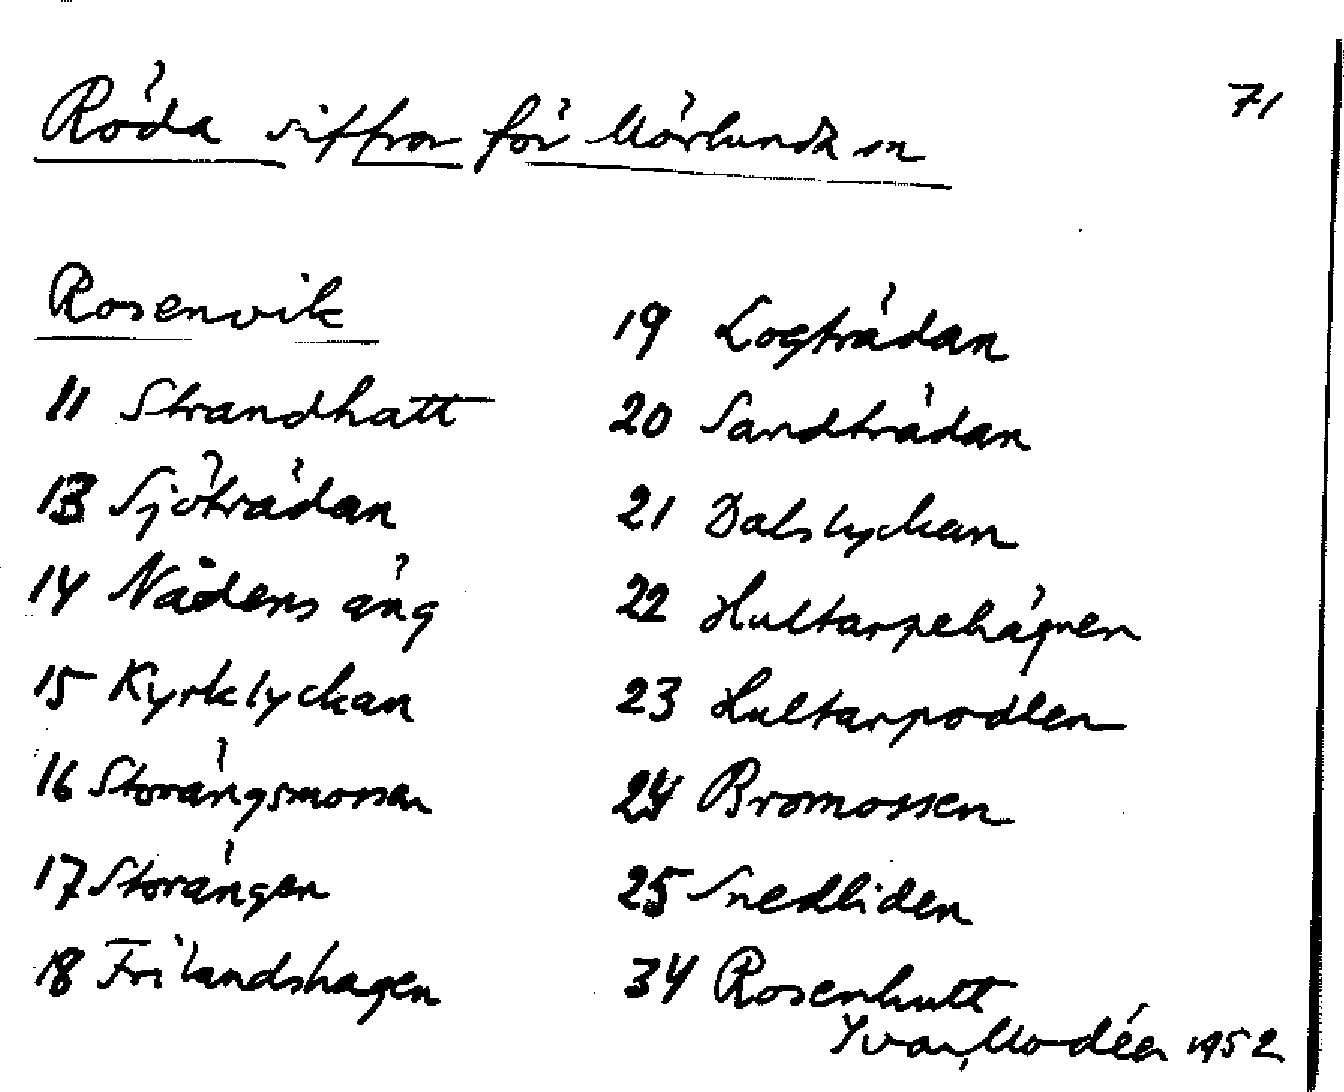 71
Röda siffror för Mörlunda sn
Rosenvik
11 Strandhatt
13 Sjöträdan
14 Nådens äng
15 Kyrklyckan
16 Storängsmossen
17 Storängen
18 Frilandshagen
19 Logträdan
20 Sandträdan
21 Dalslyckan
22 Hultarpehägnen
23 Hultarpodlen
24 Bromossen
25 Snedliden
34 Rosenhutt
Yvar Modéer 1952